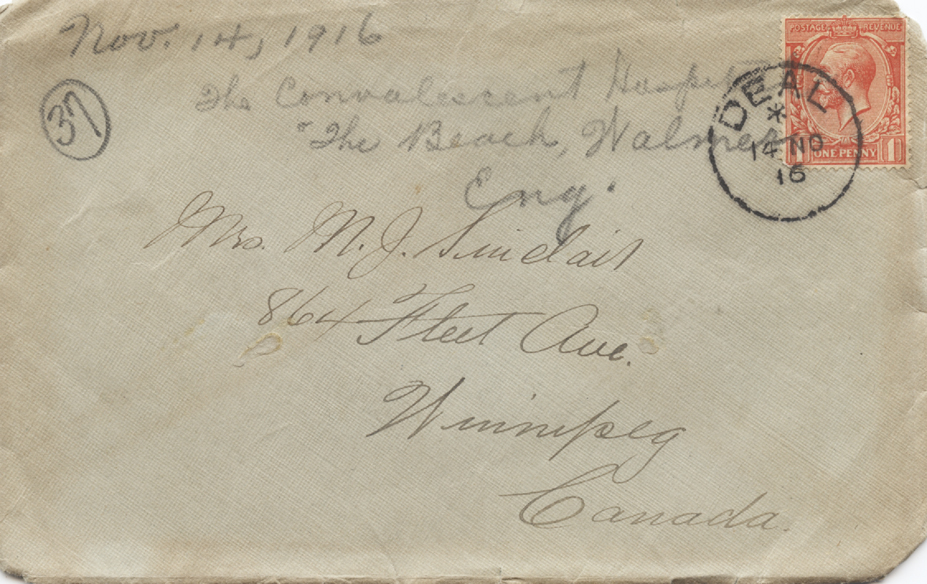 Nov. 14, 1916
37
The Convalescent Hospital
"The Beach, Walmer
Eng.
POSTAGE REVENUE
DEAL
*
14 NO
16
1 ONE PENNY 1
Mrs. M. J. Sinclair
864 Fleet Ave.
Winnipeg
Canada.